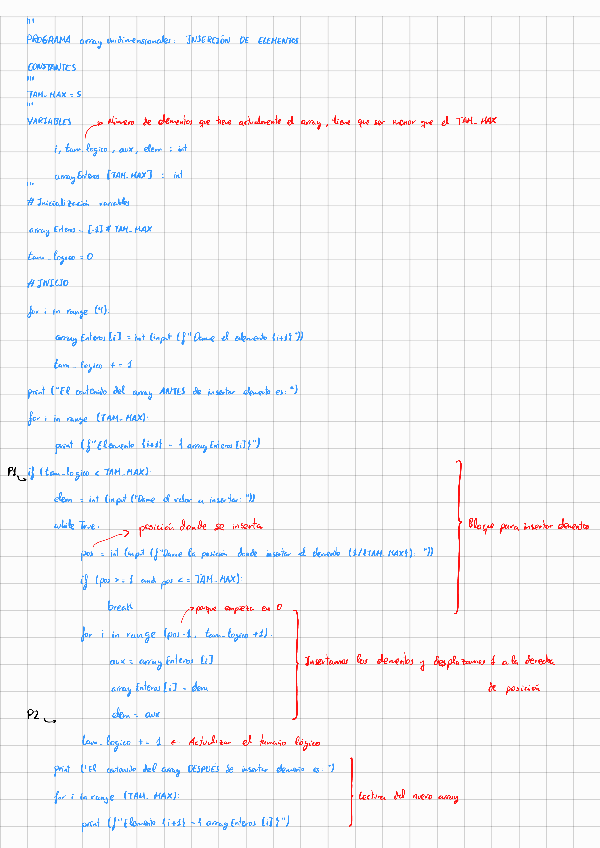 """
PROGRAMA array unidimensionales: INSERCIÓN DE ELEMENTOS
CONSTANTES
"""
TAM_MAX = 5
"""
VARIABLES
Número de elementos que tiene actualmente el array, tiene que ser menor que el TAM_MAX
i, tam_logico, aux, elem : int
arrayEnteros [TAM_MAX] : int
"""
# Inicialización variables
arrayEnteros = [-1] * TAM_MAX
tam_logico = 0
# INICIO
for i in range (4):
arrayEnteros[i] = int (input (f"Dame el elemento {i+1}"))
tam_logico += 1
print ("El contenido del array ANTES de insertar elemento es: ")
for i in range (TAM_MAX):
print (f"Elemento {i+1} = {arrayEnteros[i]}")
P1 if (tam_logico < TAM_MAX):
elem = int (input ("Dame el valor a insertar: "))
while True: posición donde se inserta
Bloque para insertar elementos
pos = int (input (f"Dame la posicion donde insertar el elemento (1/{TAM_MAX}): "))
if (pos >= 1 and pos <= TAM_MAX):
break
porque empieza en 0
for i in range (pos-1, tam_logico +1):
aux = arrayEnteros [i]
Insertamos los elementos y desplazamos 1 a la derecha
de posición
arrayEnteros[i] = elem
elem = aux
P2
tam_logico += 1 ← Actualizar el tamaño lógico
print ("El contenido del array DESPUÉS de insertar elemento es: ")
for i in range (TAM_MAX):
Lectura del nuevo array
print (f"Elemento {i+1} = {arrayEnteros[i]}")